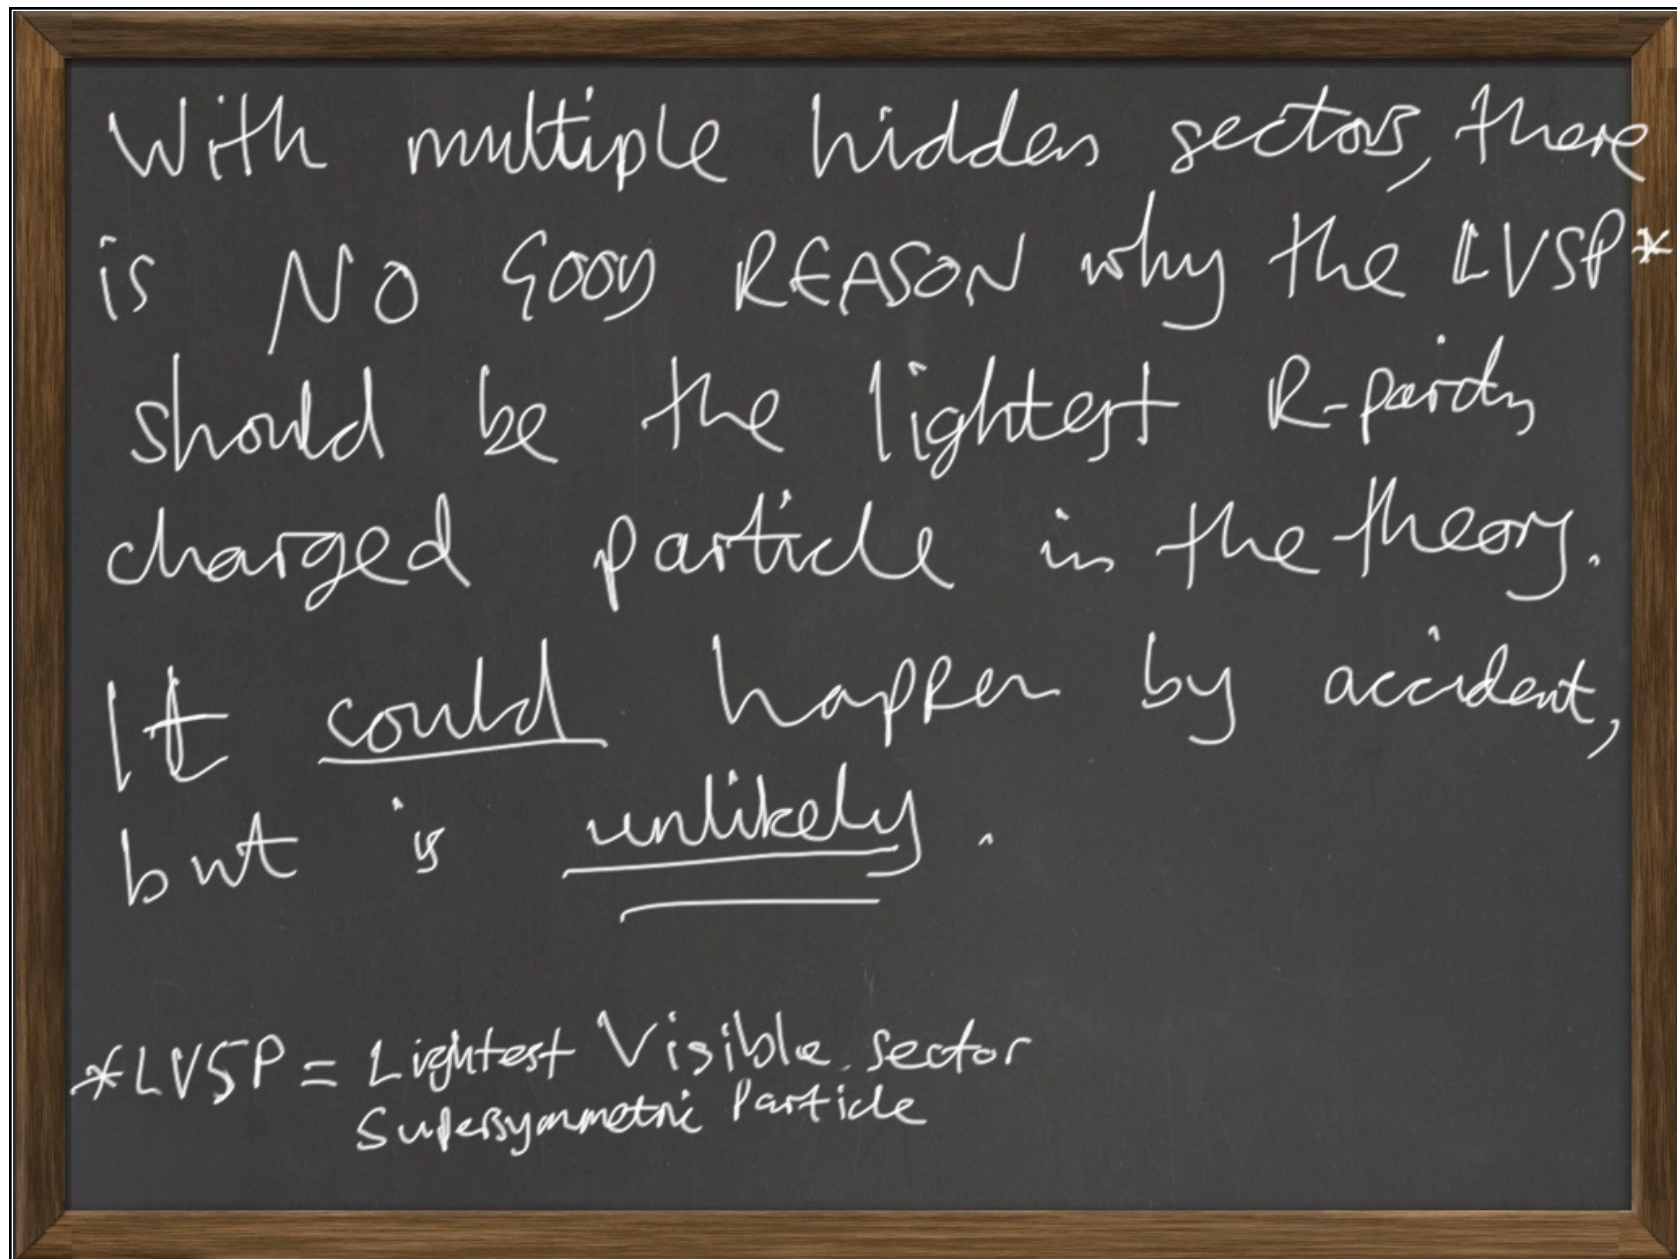 With multiple hidden sectors, there
is NO GOOD REASON why the LVSP*
should be the lightest R-parity
charged particle in the theory.
It could happen by accident,
but is unlikely.
*LVSP = Lightest Visible sector
Supersymmetric Particle